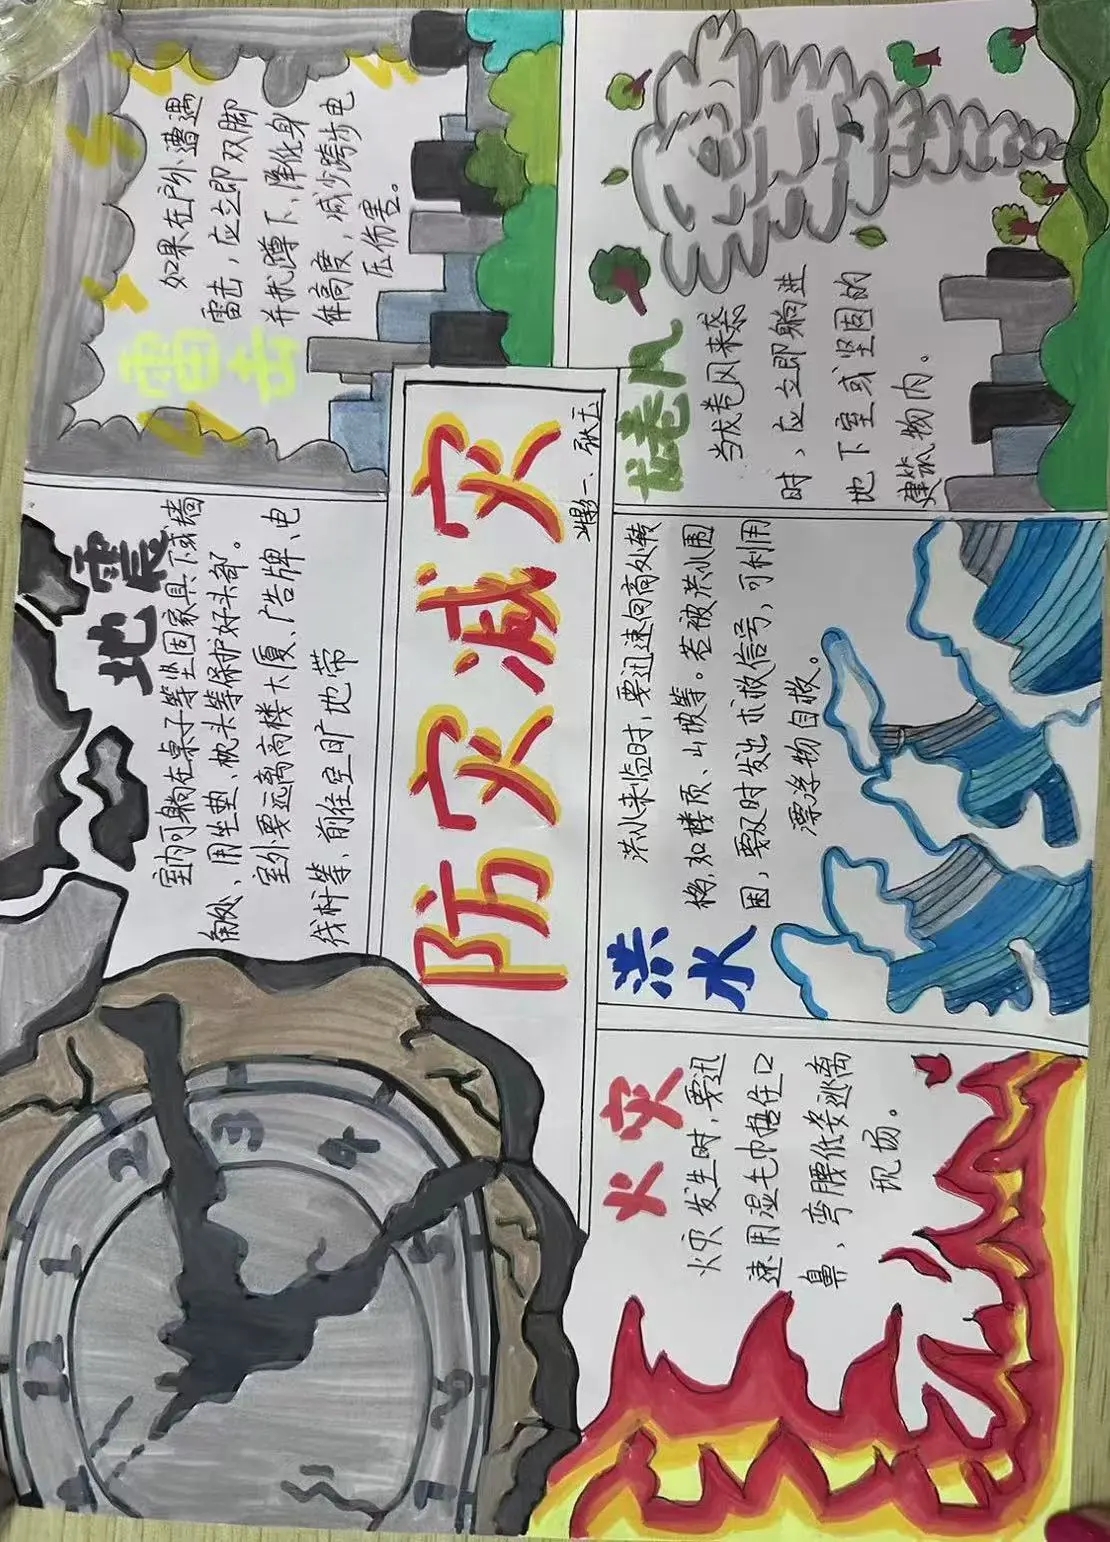 防灾减灾
地震
室内可躺在桌子等坚固家具下或墙
角处、用坐垫、枕头等保护好头部。
室外要远离高楼大厦、广告牌、电
线杆等、前往空旷地带
雷击
如果在户外遭遇
雷击，应立即双脚
并拢蹲下、降低身
体高度，减少跨步电
压伤害。
火灾
火灾发生时，要迅
速用湿毛巾捂住口
鼻、弯腰低姿逃离
现场。
洪水
洪水来临时，要迅速向高处转
移，如楼顶、山坡等。若被洪水围
困，要及时发出求救信号，可利用
漂浮物自救。
龙卷风
当龙卷风来袭
时，应立即躺进
地下室或坚固的
建筑物内。
12
1
2
3
4
5
6